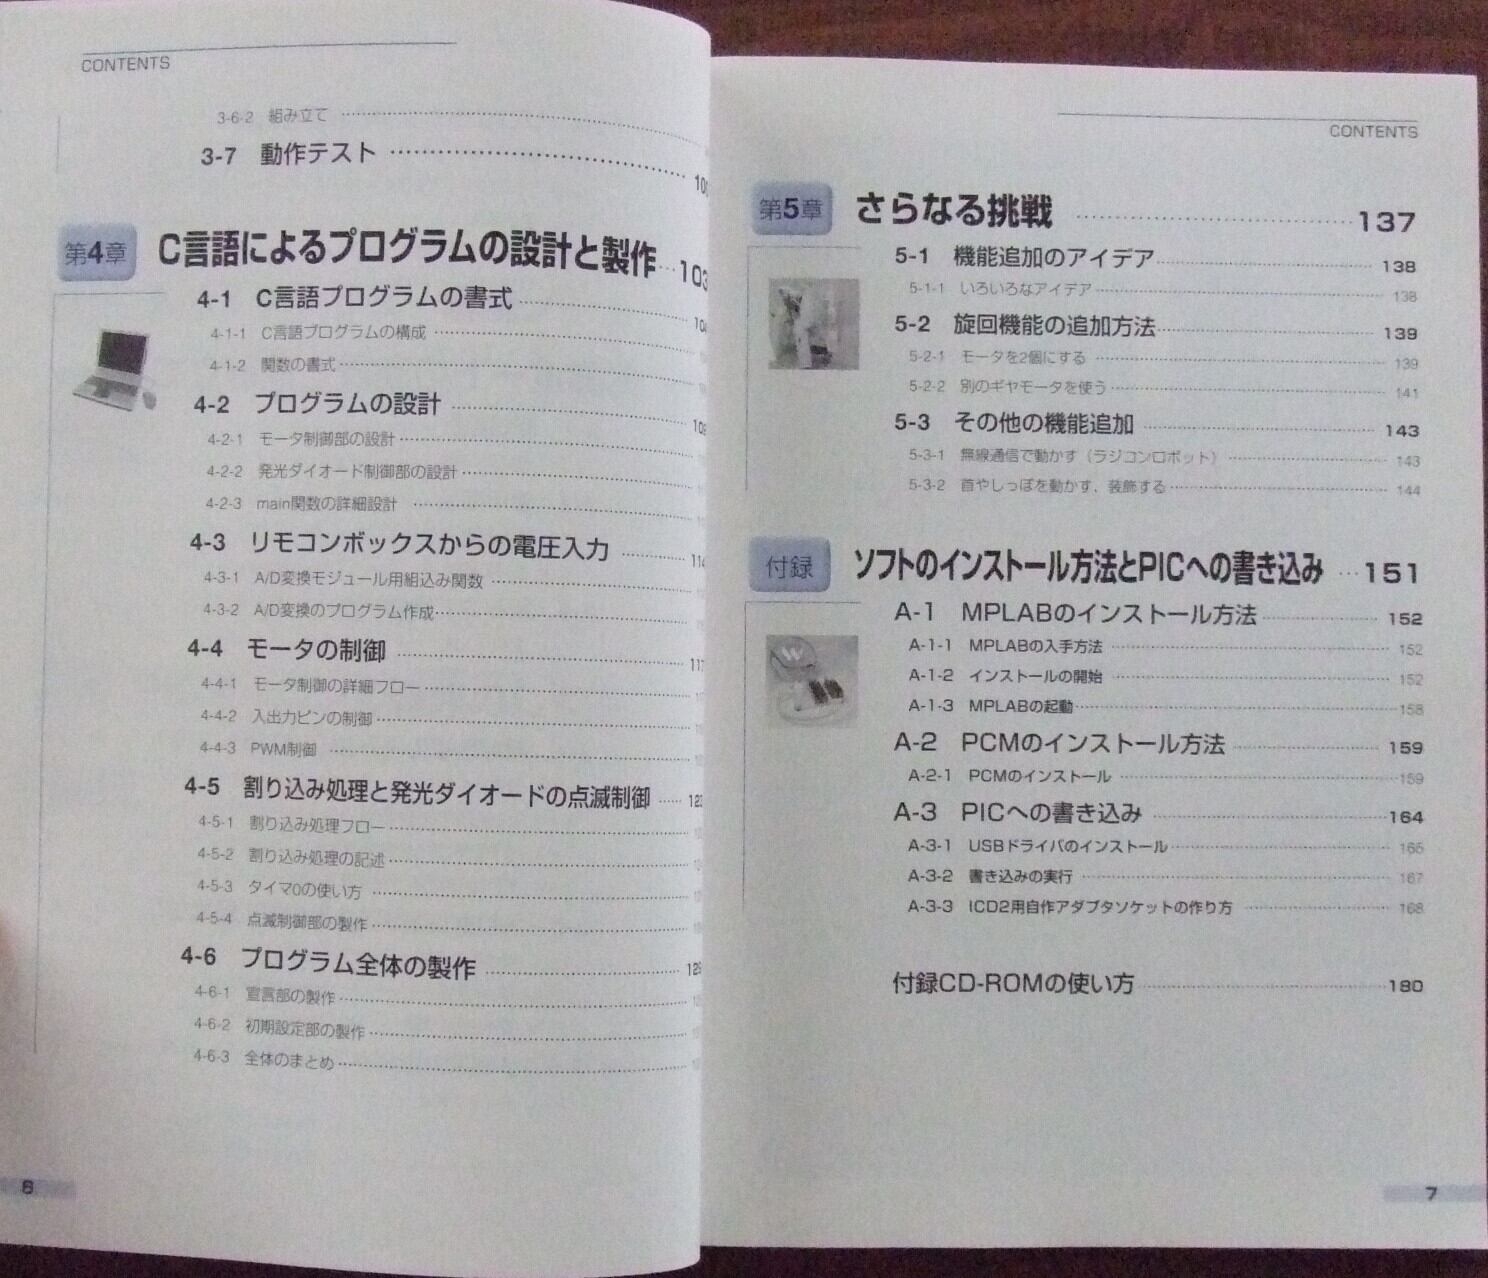 CONTENTS
3-6-2 組み立て
3-7 動作テスト
第4章 C言語によるプログラムの設計と製作 103
4-1 C言語プログラムの書式
4-1-1 C言語プログラムの構成
4-1-2 関数の書式
4-2 プログラムの設計
4-2-1 モータ制御部の設計
4-2-2 発光ダイオード制御部の設計
4-2-3 main関数の詳細設計
4-3 リモコンボックスからの電圧入力
4-3-1 A/D変換モジュール用組込み関数
4-3-2 A/D変換のプログラム作成
4-4 モータの制御
4-4-1 モータ制御の詳細フロー
4-4-2 入出力ピンの制御
4-4-3 PWM制御
4-5 割り込み処理と発光ダイオードの点滅制御
4-5-1 割り込み処理フロー
4-5-2 割り込み処理の記述
4-5-3 タイマ0の使い方
4-5-4 点滅制御部の製作
4-6 プログラム全体の製作
4-6-1 宣言部の製作
4-6-2 初期設定部の製作
4-6-3 全体のまとめ
6
CONTENTS
第5章 さらなる挑戦 137
5-1 機能追加のアイデア 138
5-1-1 いろいろなアイデア 138
5-2 旋回機能の追加方法 139
5-2-1 モータを2個にする 139
5-2-2 別のギヤモータを使う 141
5-3 その他の機能追加 143
5-3-1 無線通信で動かす（ラジコンロボット） 143
5-3-2 首やしっぽを動かす、装飾する 144
付録 ソフトのインストール方法とPICへの書き込み 151
A-1 MPLABのインストール方法 152
A-1-1 MPLABの入手方法 152
A-1-2 インストールの開始 152
A-1-3 MPLABの起動 158
A-2 PCMのインストール方法 159
A-2-1 PCMのインストール 159
A-3 PICへの書き込み 164
A-3-1 USBドライバのインストール 165
A-3-2 書き込みの実行 167
A-3-3 ICD2用自作アダプタソケットの作り方 168
付録CD-ROMの使い方 180
7